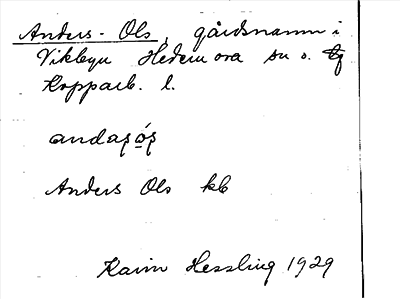 Anders - Ols, gårdsnamn i
Vikbyn Hedemora sn o.
Kopparb. l.
Anders Ols kb
Karin Hessling 1929